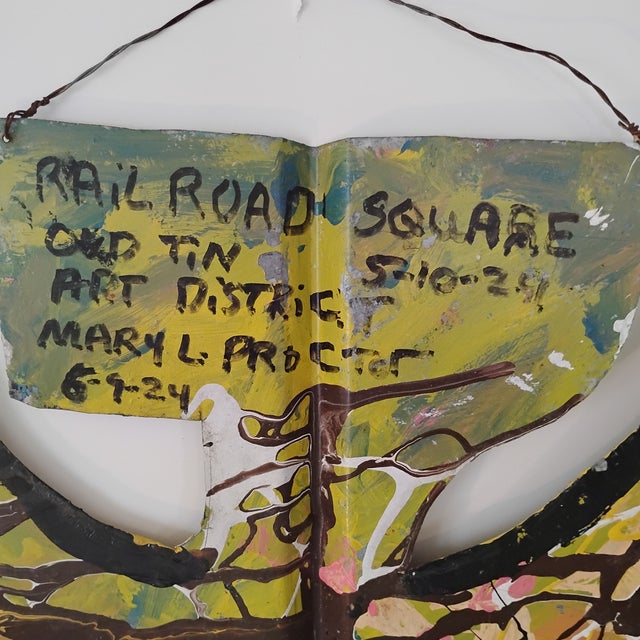 RAiLROAD SQUARE
OLD TiN 5-10-24
ART DiSTRiCT
MARY L. PROCTOr
6-9-24